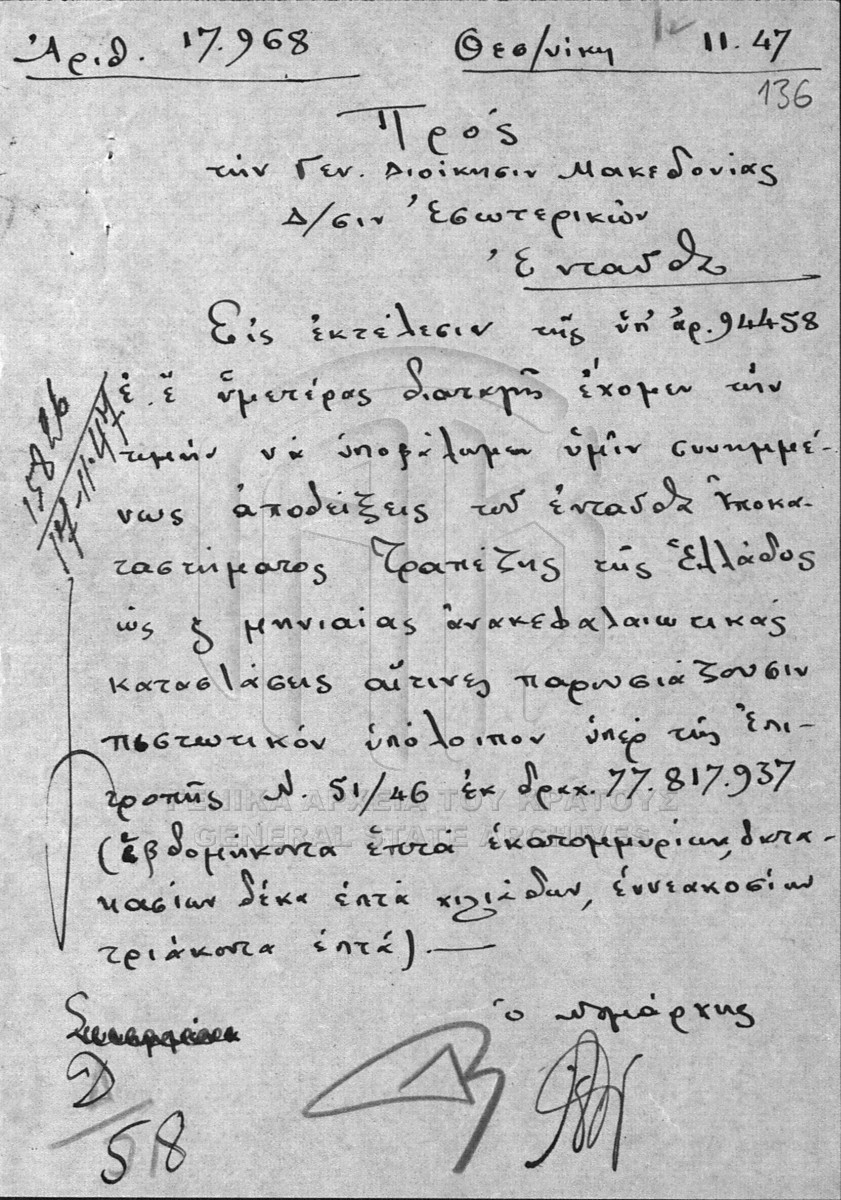 Ἀριθ. 17.968 Θεσ/νίκη 11.47
136
Πρός
τὴν Γεν. Διοίκησιν Μακεδονίας
Δ/σιν Ἐσωτερικῶν
Ἐνταῦθα
Εἰς ἐκτέλεσιν τῆς ὑπ' ἀρ. 94458
ἐ.ἔ ὑμετέρας διαταγῆς ἔχομεν τὴν
τιμὴν νὰ ὑποβάλωμεν ὑμῖν συνημμέ-
νως ἀποδείξεις τοῦ ἐνταῦθα Ὑποκα-
ταστήματος Τραπέζης τῆς Ἑλλάδος
ὡς ξ μηνιαίας ἀνακεφαλαιωτικάς
καταστάσεις αἵτινες παρουσιάζουσιν
πιστωτικόν ὑπόλοιπον ὑπέρ τῆς Ἐπι-
τροπῆς Ν. 51/46 ἐκ δρχ. 77.817.937
(ἑβδομήκοντα ἑπτά ἑκατομμυρίων, ὀκτα-
κοσίων δέκα ἑπτά χιλιάδων, ἐννεακοσίων
τριάκοντα ἑπτά).—
Ὁ Νομάρχης
58
15826
17-11-47
ΓΕΝΙΚΑ ΑΡΧΕΙΑ ΤΟΥ ΚΡΑΤΟΥΣ
GENERAL STATE ARCHIVES